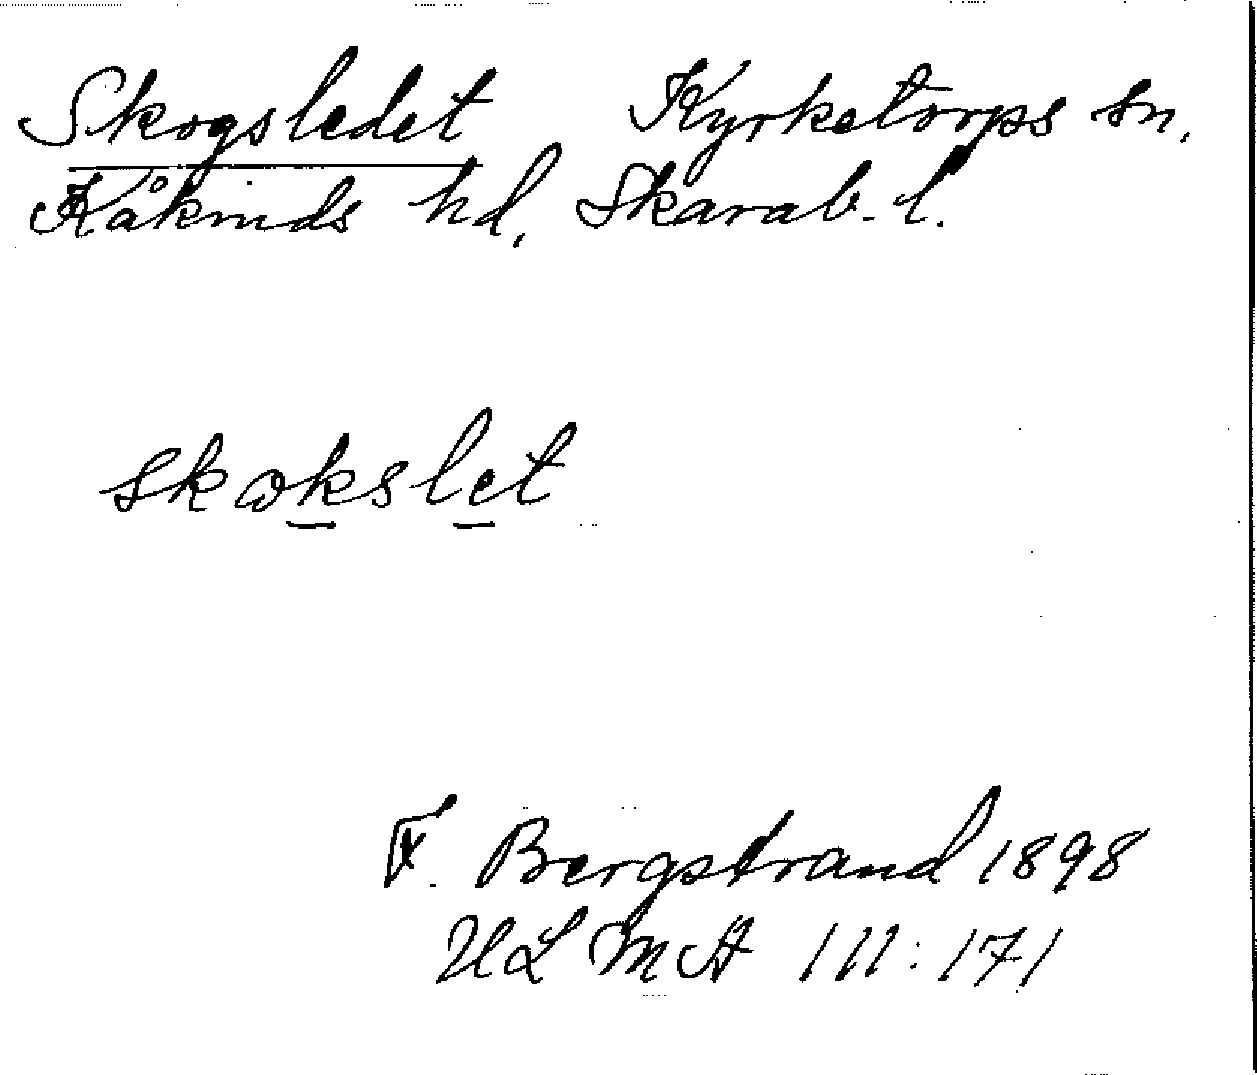 Skogsledet Kyrketorps sn,
Kåkinds hd, Skarab. l.
skωkslet
F. Bergstrand 1898
ULMA 111:171